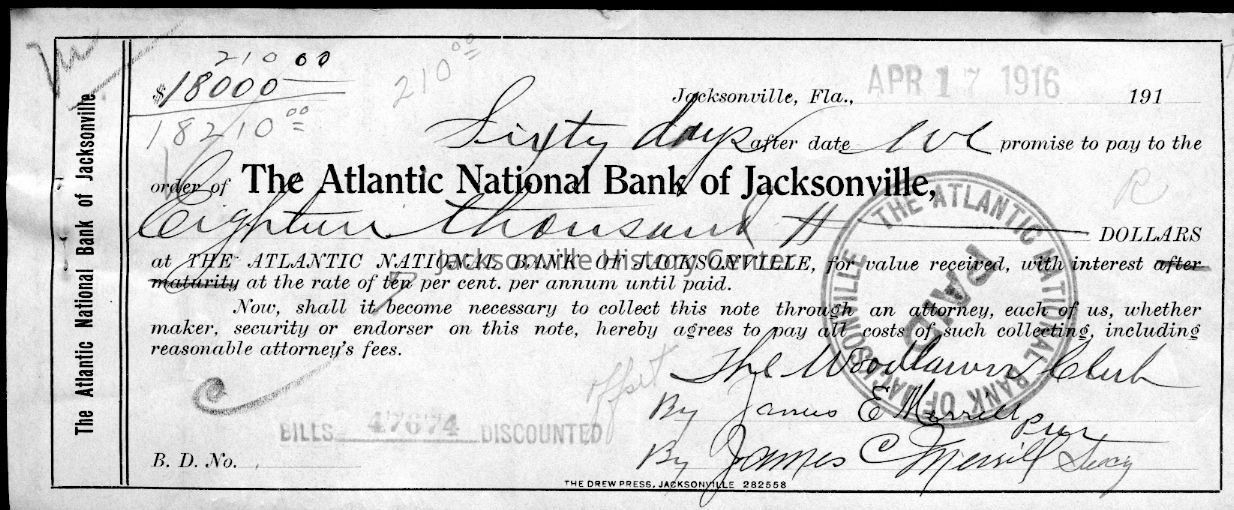 The Atlantic National Bank of Jacksonville
210 00
$18000
18210 00
210 00
Jacksonville, Fla., APR 17 1916 191
Sixty days after date we promise to pay to the
order of The Atlantic National Bank of Jacksonville,
Eighteen thousand DOLLARS
at THE ATLANTIC NATIONAL BANK OF JACKSONVILLE, for value received, with interest after
maturity at the rate of ten per cent. per annum until paid.
Now, shall it become necessary to collect this note through an attorney, each of us, whether
maker, security or endorser on this note, hereby agrees to pay all costs of such collecting, including
reasonable attorney's fees.
Jacksonville History Center
THE ATLANTIC NATIONAL BANK OF JACKSONVILLE
PAID
R
offset
The Woodlawn Club
By James E Merrill Pres
By James C Merrill Secy
BILLS 47674 DISCOUNTED
B. D. No.
THE DREW PRESS, JACKSONVILLE 282558